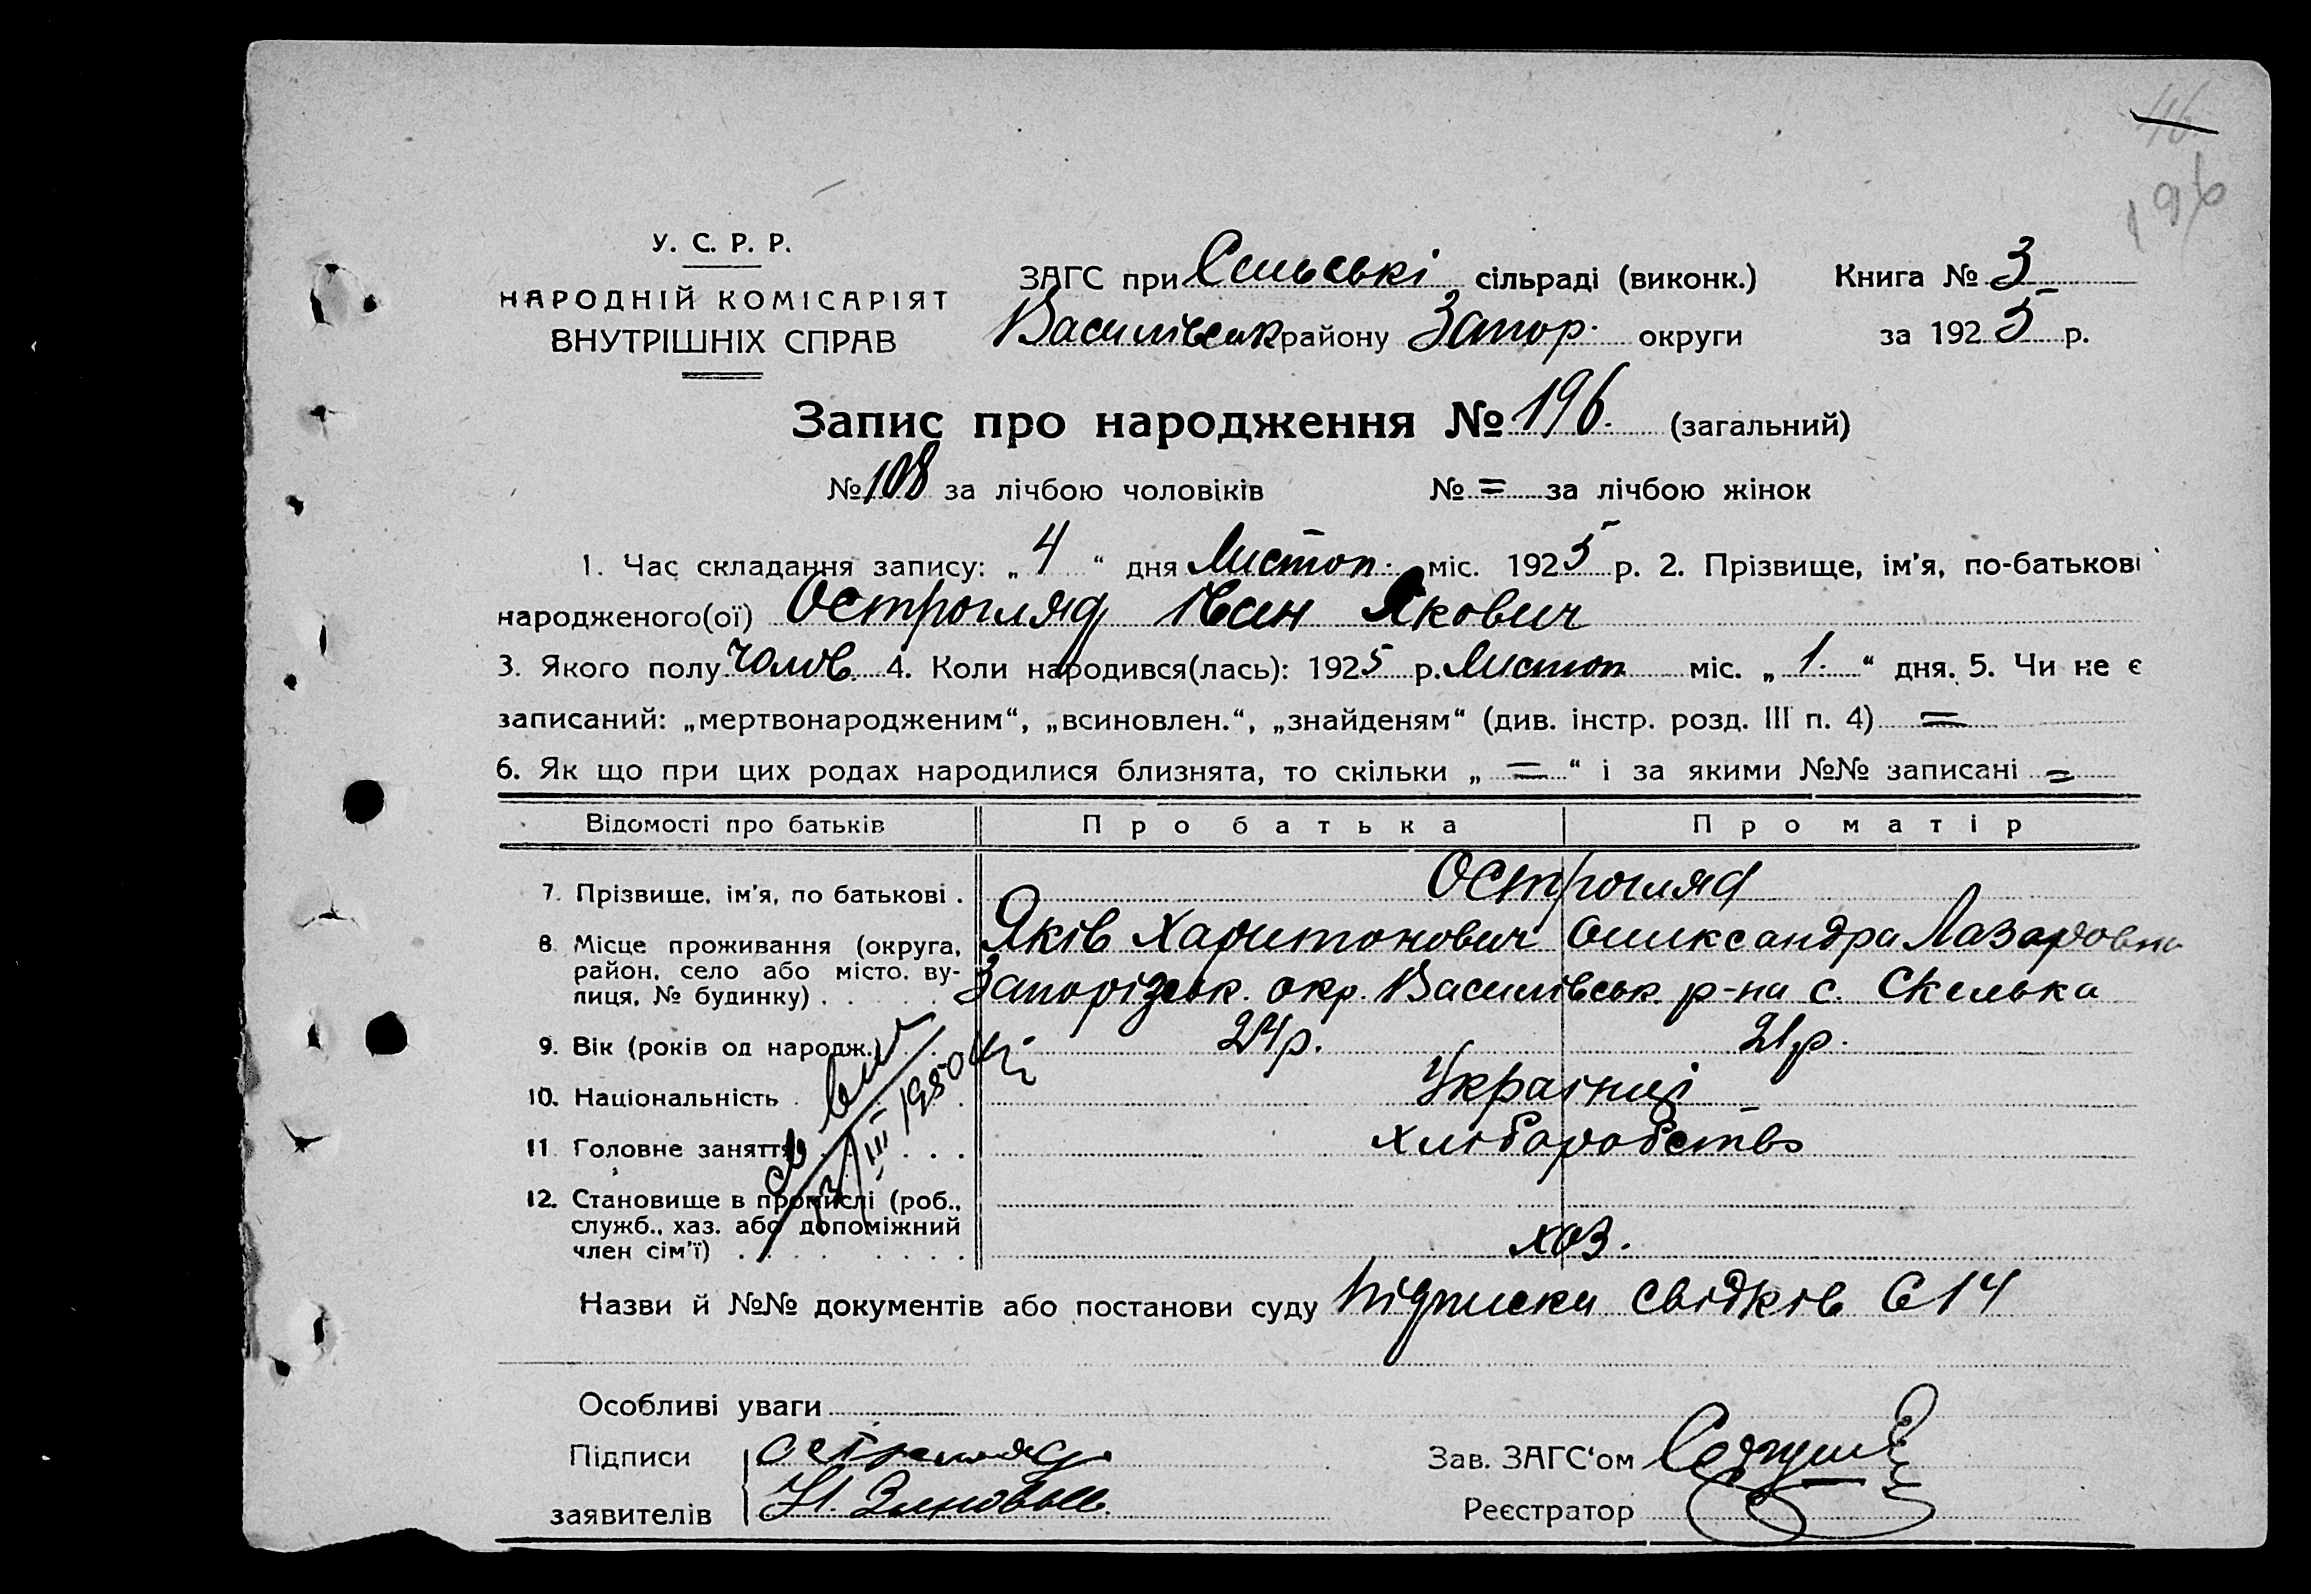 46
196
У. С. Р. Р.
НАРОДНІЙ КОМІСАРІЯТ
ВНУТРІШНІХ СПРАВ
ЗАГС при Скельські сільраді (виконк.) Книга № 3
Василівськ району Запор. округи за 1925 р.
Запис про народження № 196. (загальний)
№ 108 за лічбою чоловіків № = за лічбою жінок
1. Час складання запису: „ 4 “ дня Листоп. міс. 1925 р. 2. Прізвище, ім'я, по-батькові
народженого(ої) Острогляд Іван Якович
3. Якого полу чолов. 4. Коли народився(лась): 1925 р. Листоп міс. „ 1. “ дня. 5. Чи не є
записаний: „мертвонародженим“, „всиновлен.“, „знайденям“ (див. інстр. розд. III п. 4) =
6. Як що при цих родах народилися близнята, то скільки „ = “ і за якими №№ записані =
Відомості про батьків Про батька Про матір
7. Прізвище, ім'я, по батькові . Острогляд
Яків Харитонович Олександра Лазаровна
8. Місце проживання (округа,
район, село або місто, ву-
лиця, № будинку) . . . . Запорізьк. окр. Василівськ. р-на с. Скелька
9. Вік (років од народж.) . . 24р. 21р.
10. Національність . . . Українці
11. Головне заняття . . . . хліборобство
12. Становище в промислі (роб.,
служб., хаз. або допоміжний
член сім'ї) . . . . . . . . хоз.
13/III 1950
Назви й №№ документів або постанови суду Підписки свідків 614
Особливі уваги
Підписи Острогляд Зав. ЗАГС'ом
заявителів Реєстратор